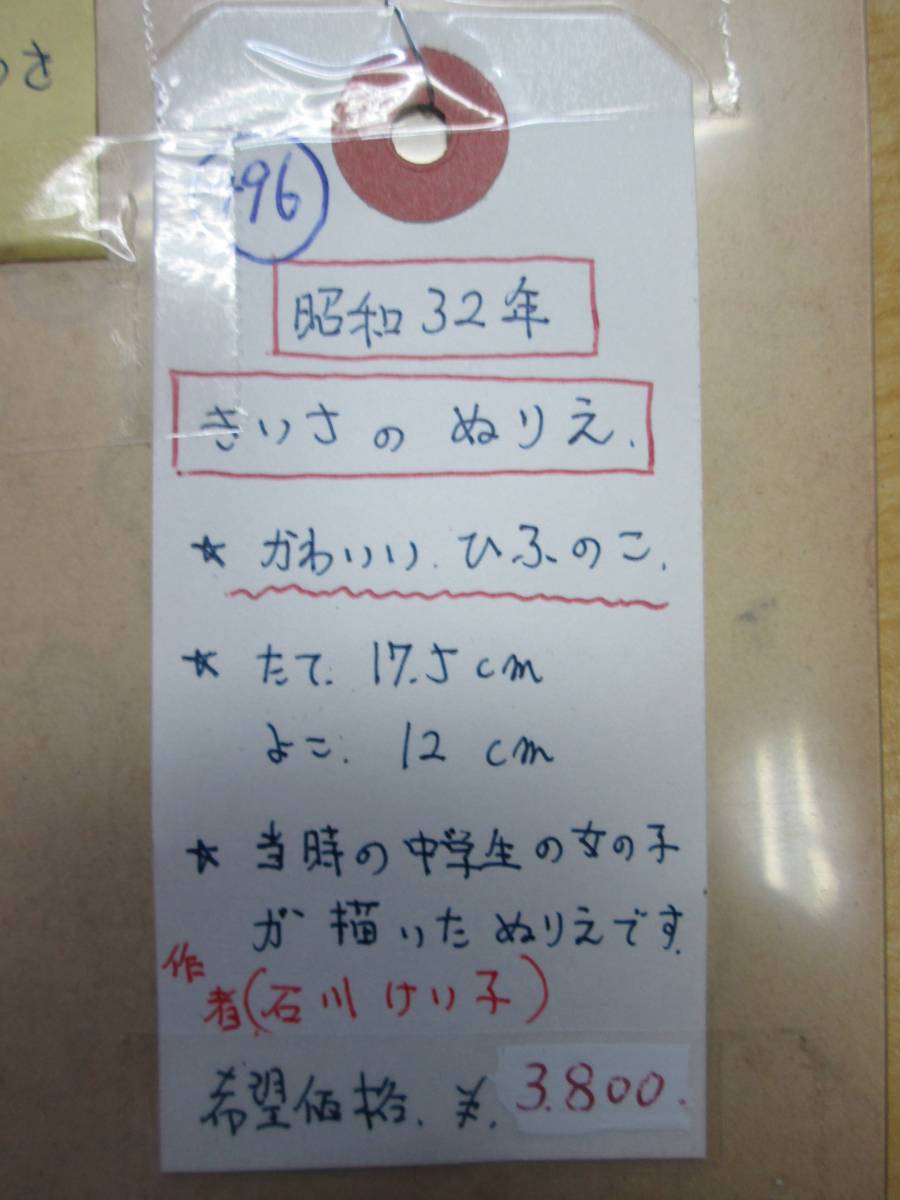 さ
96
昭和32年
きいさのぬりえ.
★ かわいい.ひふのこ.
★ たて. 17.5cm
よこ. 12cm
★ 当時の中学生の女の子
が描いたぬりえです.
作者(石川けい子)
希望価格.¥.3.800.